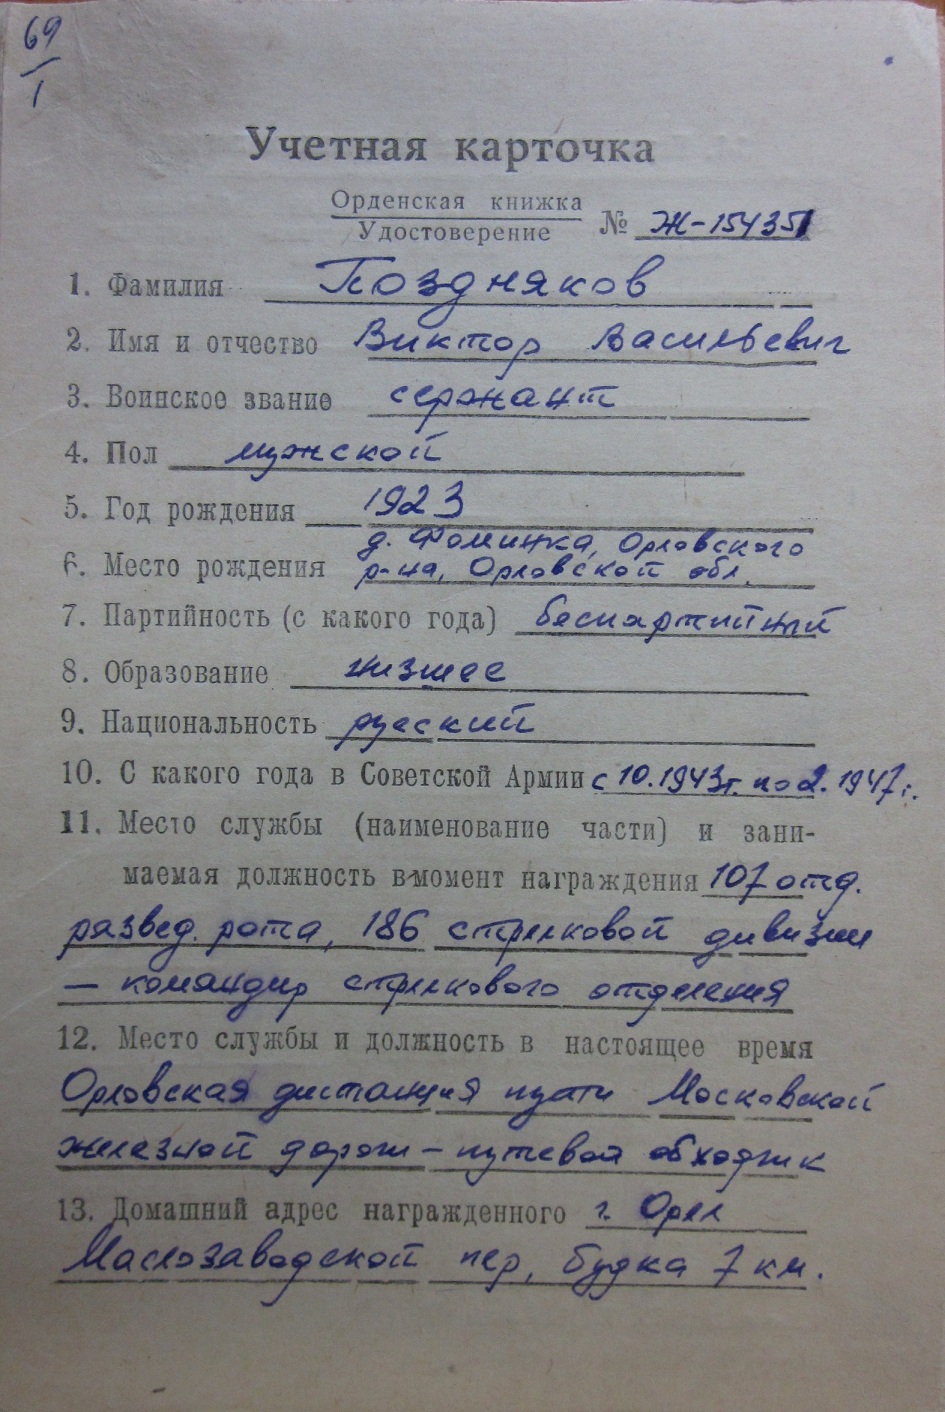 69
1
Учетная карточка
Орденская книжка
Удостоверение
№ Ж-154351
1. Фамилия Поздняков
2. Имя и отчество Виктор Васильевич
3. Воинское звание сержант
4. Пол мужской
5. Год рождения 1923
д. Фоминка, Орловского
6. Место рождения р-на, Орловской обл.
7. Партийность (с какого года) беспартийный
8. Образование низшее
9. Национальность русский
10. С какого года в Советской Армии с 10.1943г. по 2.1947г.
11. Место службы (наименование части) и зани-
маемая должность в момент награждения 107 отд.
развед. рота, 186 стрелковой дивизии
— командир стрелкового отделения
12. Место службы и должность в настоящее время
Орловская дистанция пути Московской
железной дороги – путевой обходчик
13. Домашний адрес награжденного г. Орел
Маслозаводской пер, будка 7 км.